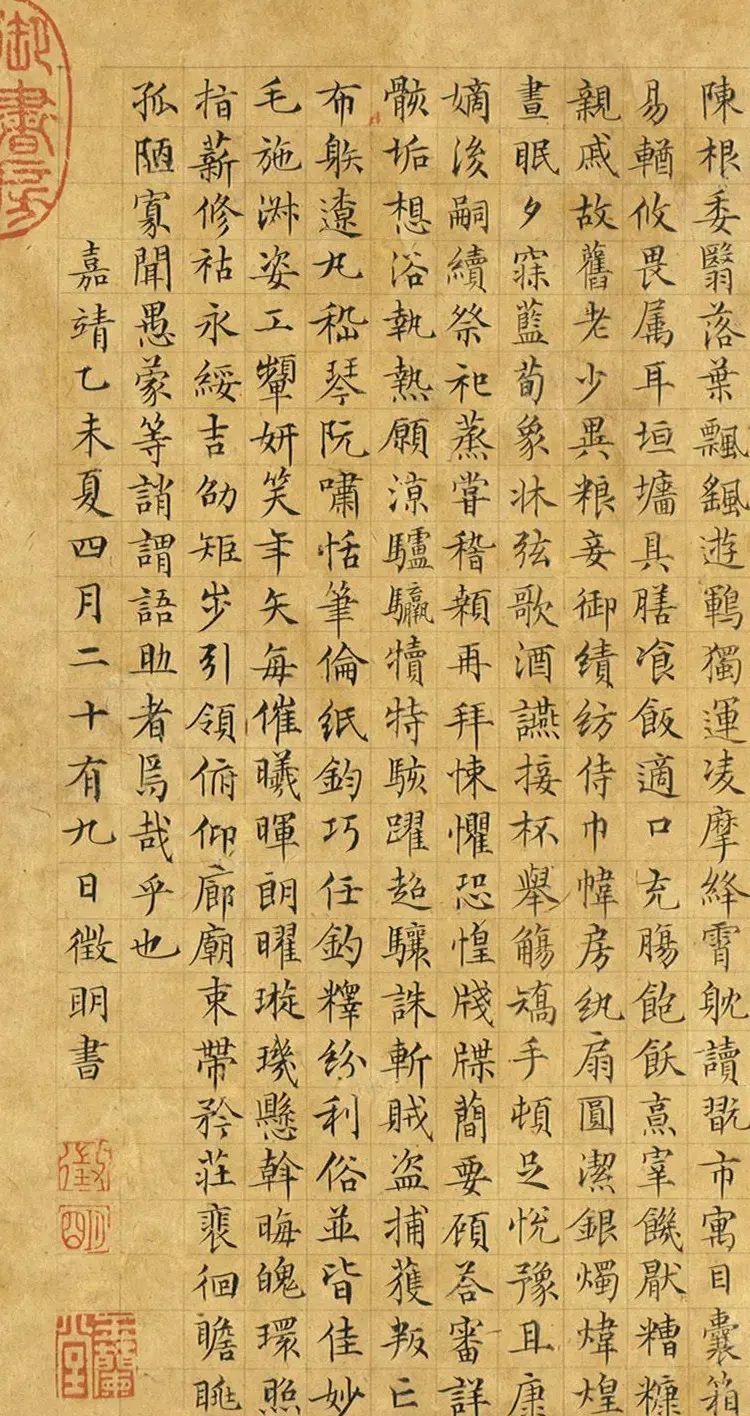 陳根委翳落葉飄颻遊鵾獨運凌摩絳霄耽讀翫市寓目囊箱
易輶攸畏属耳垣墻具膳飡飯適口充腸飽飫烹宰饑厭糟糠
親戚故舊老少異粮妾御績紡侍巾幃房紈扇圓潔銀燭煒煌
晝眠夕寐藍荀象牀弦歌酒讌接杯舉觴矯手頓足悅豫且康
嫡後嗣續祭祀蒸嘗稽顙再拜悚懼恐惶牋牒簡要顧荅審詳
骸垢想浴執熱願涼驢驘犢特駭躍超驤誅斬賊盗捕獲叛亡
布䠶遼丸嵇琴阮嘯恬筆倫紙鈞巧任釣釋紛利俗並皆佳妙
毛施淑姿工顰妍笑年矢每催曦暉朗曜璇璣懸斡晦魄環照
指薪修祜永綏吉劭矩步引領俯仰廊廟束帶矜莊裵徊瞻眺
孤陋寡聞愚蒙等誚謂語助者焉哉乎也
嘉靖乙未夏四月二十有九日徵明書
徵明
玉蘭堂
御書房